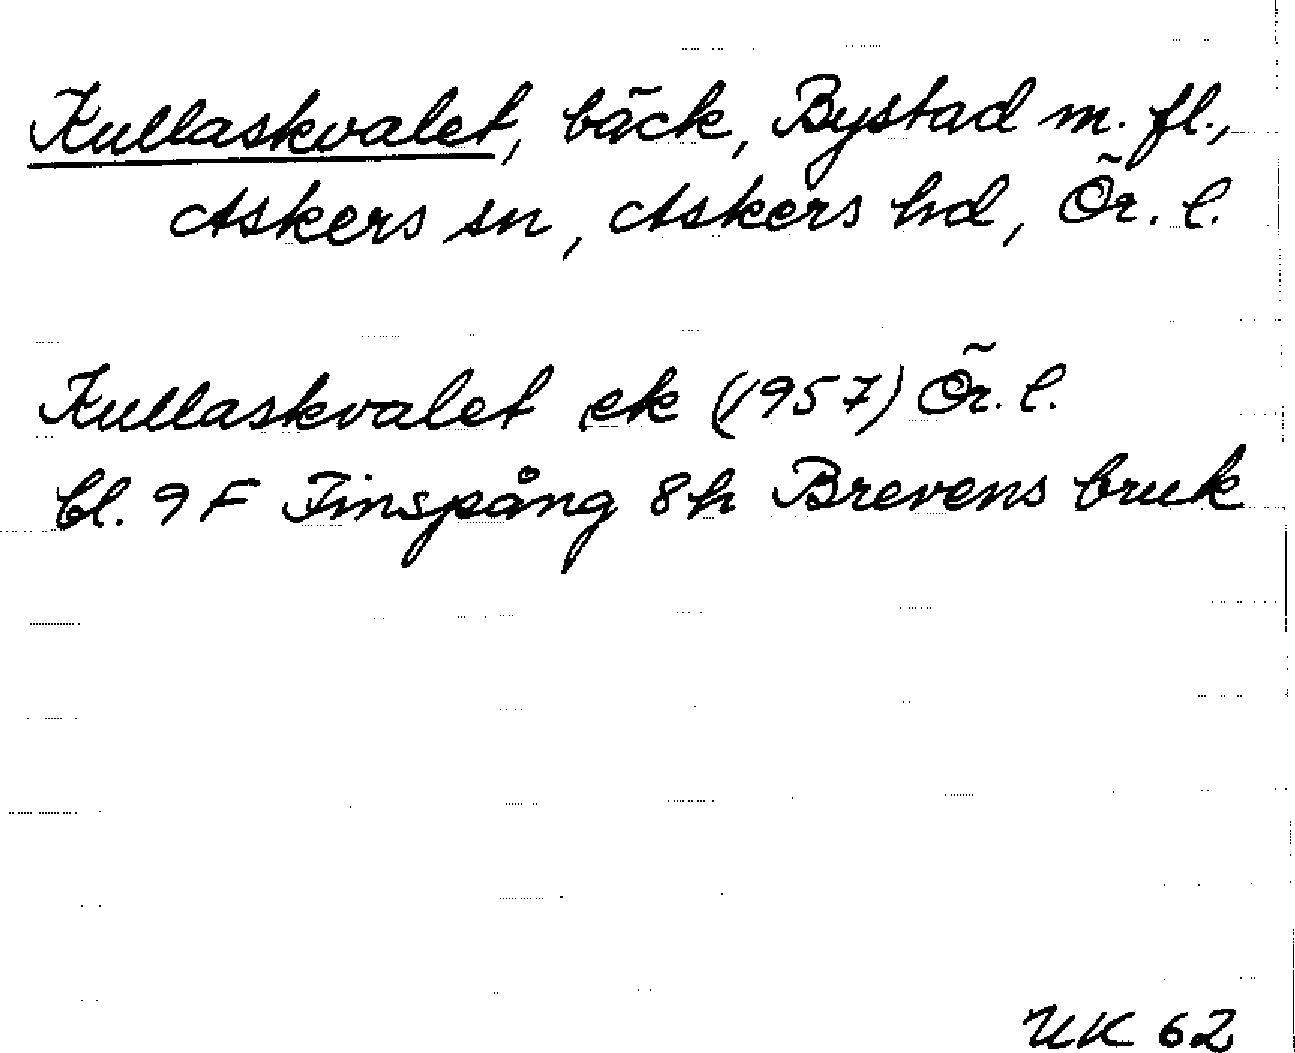 Kullaskvalet, bäck, Bystad m. fl.,
Askers sn, Askers hd, Ör. l.
Kullaskvalet ek (1957) Ör. l.
bl. 9F Finspång 8h Brevens bruk
UK 62